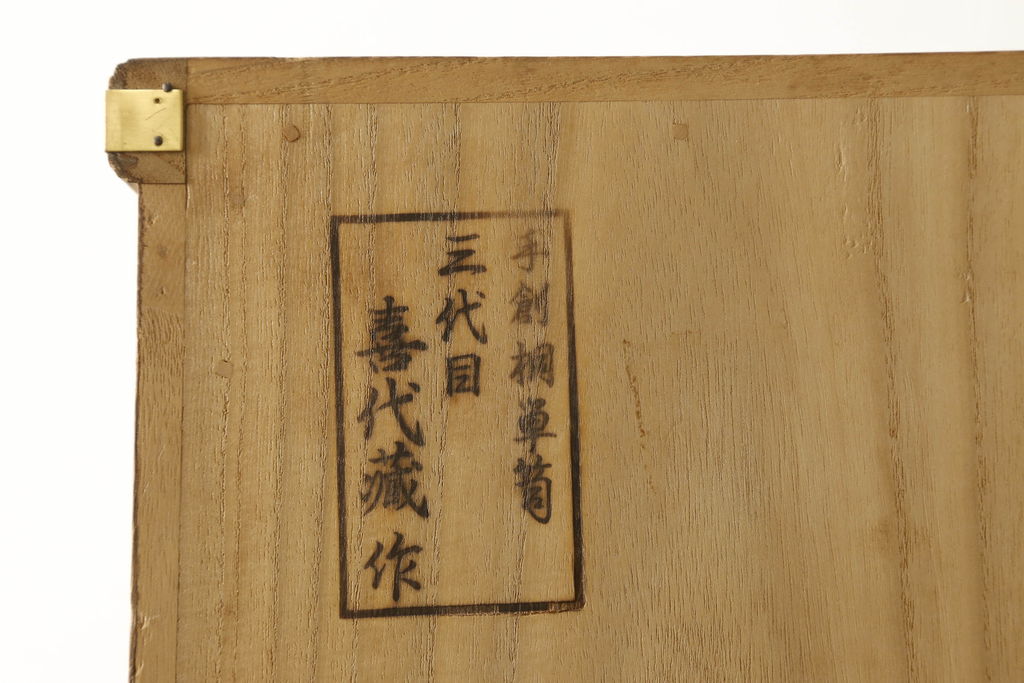 手創桐単笥
三代目
喜代藏作